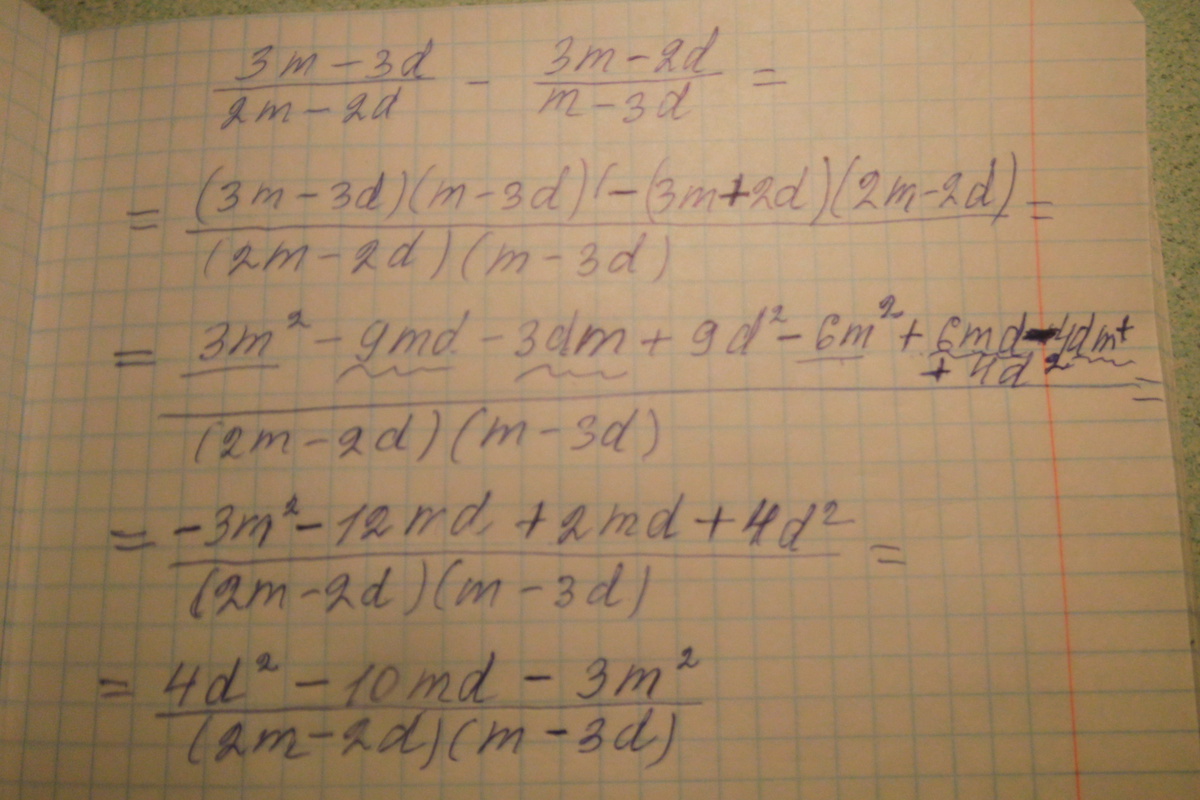 3m - 3d / 2m - 2d - 3m - 2d / m - 3d =
= (3m - 3d)(m - 3d) (- (3m + 2d)(2m - 2d) / (2m - 2d)(m - 3d) =
= 3m² - 9md - 3dm + 9d² - 6m² + 6md - 4dm + + 4d² / (2m - 2d)(m - 3d) =
= -3m² - 12md + 2md + 4d² / (2m - 2d)(m - 3d) =
= 4d² - 10md - 3m² / (2m - 2d)(m - 3d)